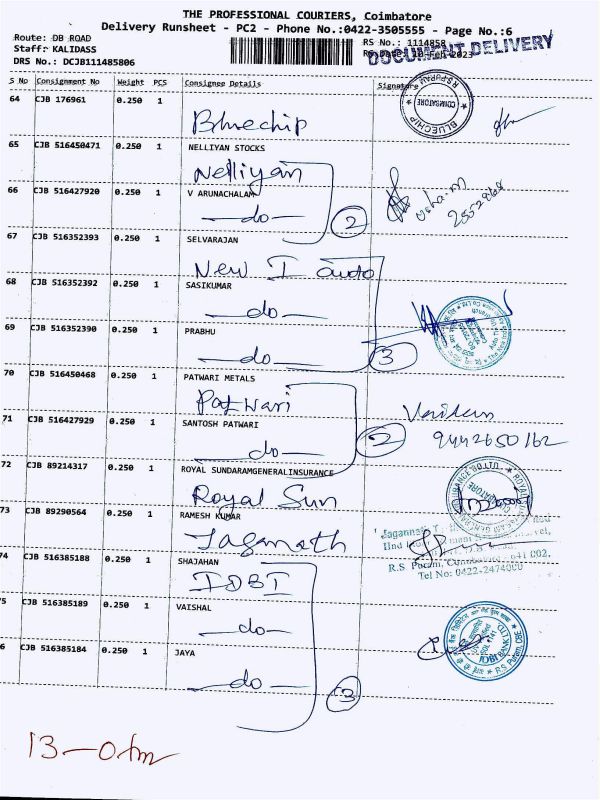 THE PROFESSIONAL COURIERS, Coimbatore
Delivery Runsheet - PC2 - Phone No.:0422-3505555 - Page No.:6
Route: DB ROAD
RS No.: 1114858
DOCUMENT DELIVERY
Staff: KALIDASS
DRS No.: DCJB111485806
S No Consignment No Weight PCS Consignee Details Signature
64 CJB 176961 0.250 1
Bluechip
BLUECHIP
COIMBATORE
65 CJB 516450471 0.250 1 NELLIYAN STOCKS
Nelliyan
66 CJB 516427920 0.250 1 V ARUNACHALAM
—do—
2
67 CJB 516352393 0.250 1 SELVARAJAN
New I
68 CJB 516352392 0.250 1 SASIKUMAR
—do—
69 CJB 516352390 0.250 1 PRABHU
—do—
3
70 CJB 516450468 0.250 1 PATWARI METALS
Patwari
71 CJB 516427929 0.250 1 SANTOSH PATWARI
—do—
2
9442650162
72 CJB 89214317 0.250 1 ROYAL SUNDARAMGENERALINSURANCE
Royal Sun
73 CJB 89290564 0.250 1 RAMESH KUMAR
Jaganath
R.S. Puram,
Tel No: 0422-2474000
74 CJB 516385188 0.250 1 SHAJAHAN
IDBI
5 CJB 516385189 0.250 1 VAISHAL
—do—
IDBI BANK LTD
R.S. Puram, CBE
6 CJB 516385184 0.250 1 JAYA
—do—
3